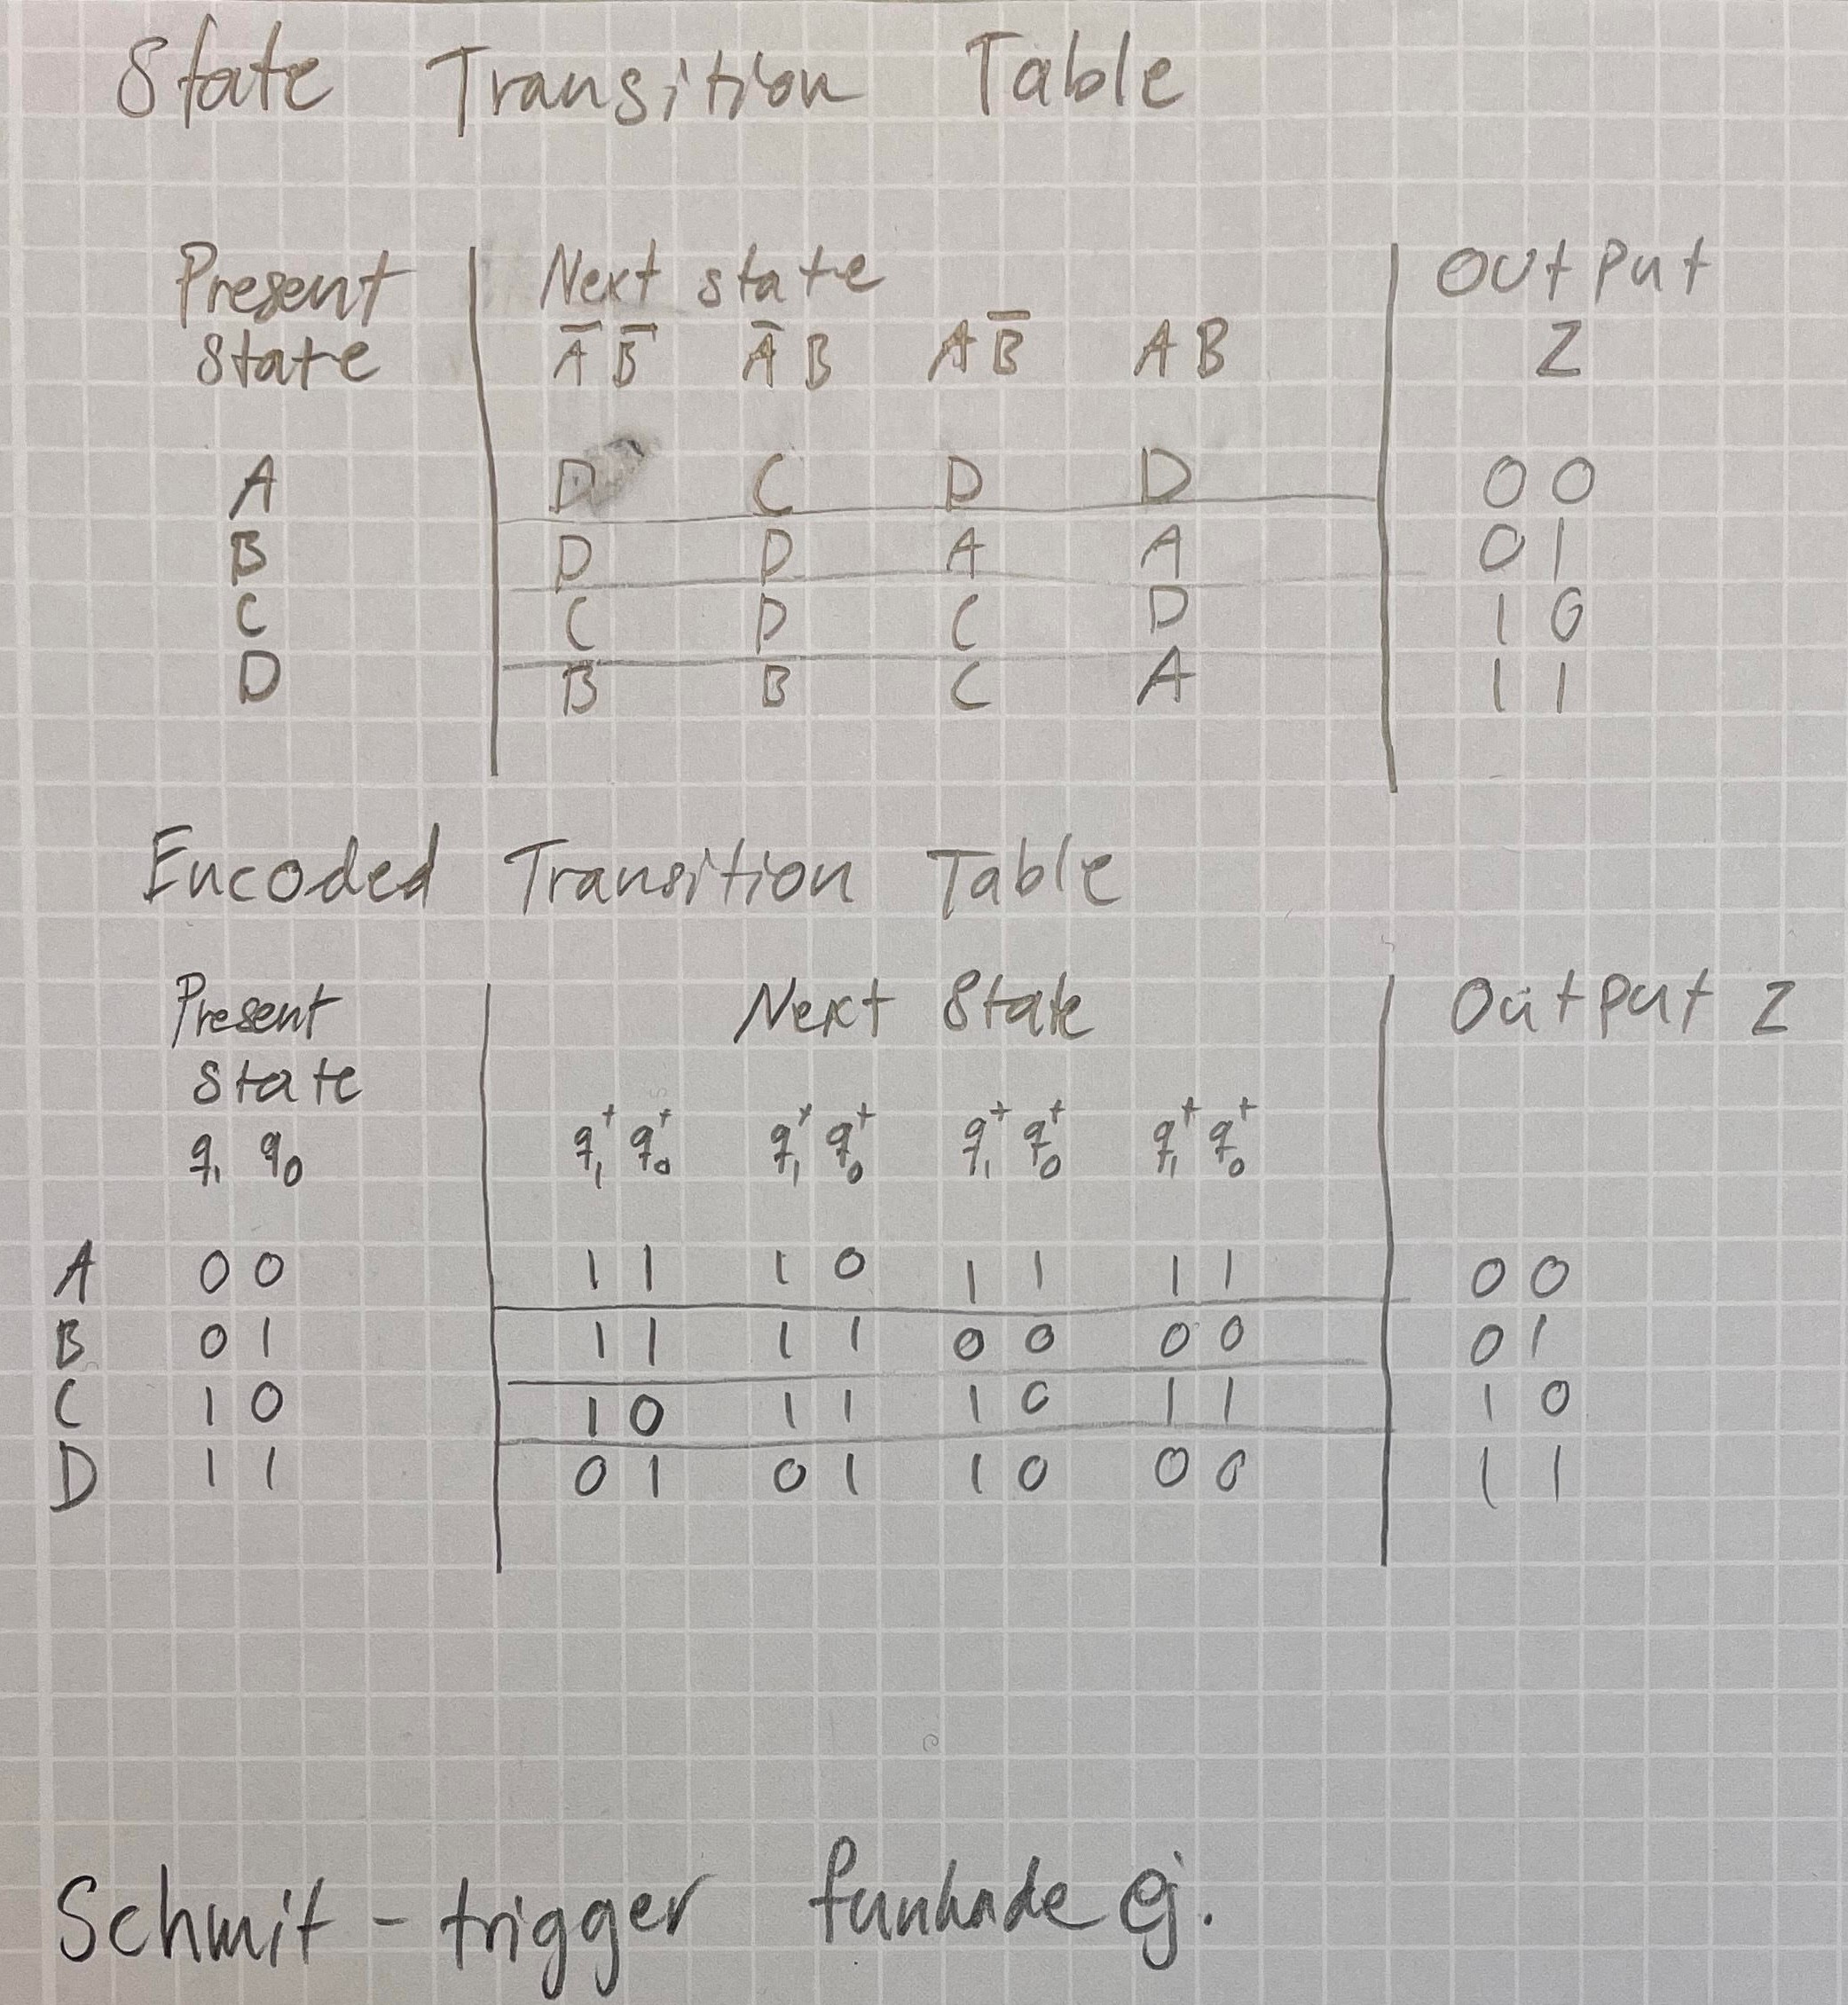 State Transition Table
Present Next state Output
State A̅ B̅ A̅ B A B̅ A B Z
A D C D D 0 0
B D D A A 0 1
C C D C D 1 0
D B B C A 1 1
Encoded Transition Table
Present Next State Output Z
State
q₁ q₀ q₁⁺ q₀⁺ q₁⁺ q₀⁺ q₁⁺ q₀⁺ q₁⁺ q₀⁺
A 0 0 1 1 1 0 1 1 1 1 0 0
B 0 1 1 1 1 1 0 0 0 0 0 1
C 1 0 1 0 1 1 1 0 1 1 1 0
D 1 1 0 1 0 1 1 0 0 0 1 1
Schmit-trigger funkade ej.